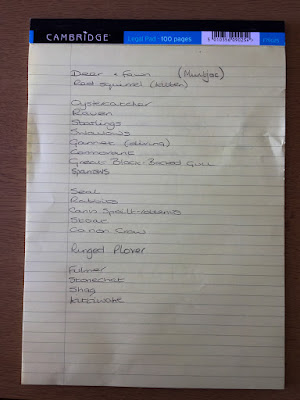 CAMBRIDGE
Legal Pad · 100 pages
Dear + Fawn (Muntjac)
Red squirrel (kitten)
Oystercatcher
Raven
Starlings
Swallows
Gannet (diving)
Cormorant
Great Black-Backed Gull
Sparrows
Seal
Rabbits
Cain
Stoat
Carrion Crow
Ringed Plover
Fulmer
Stonechat
Shag
Kittiwake